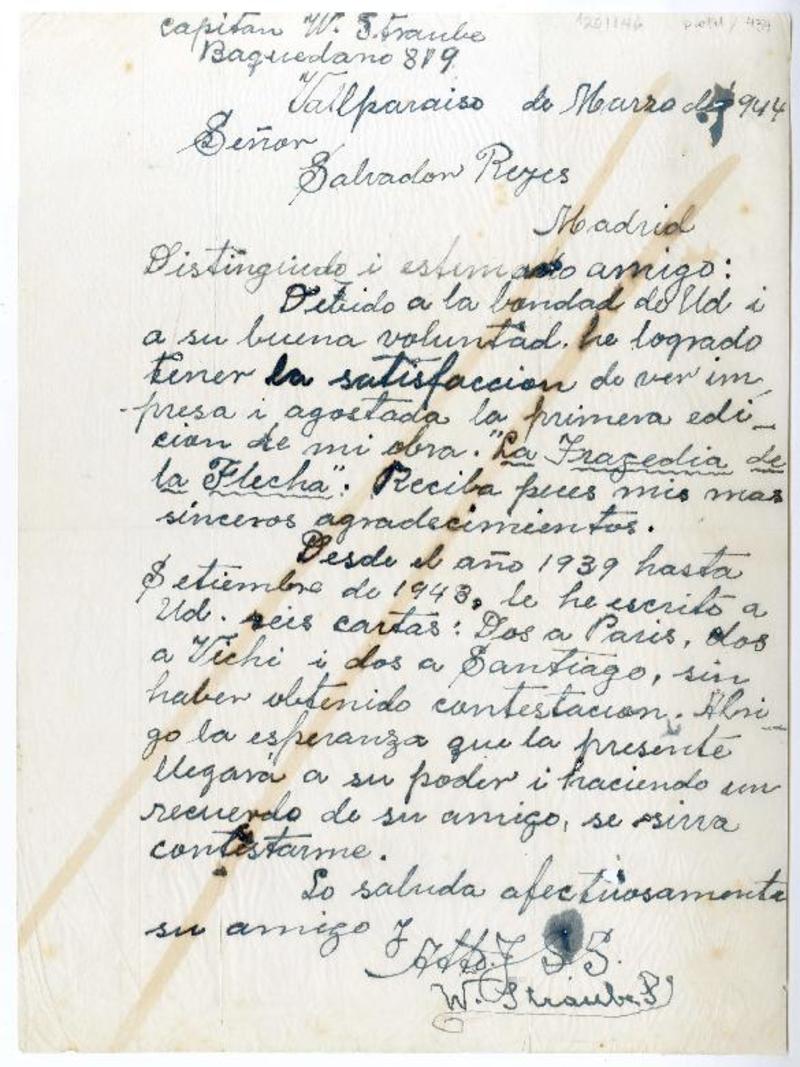 capitan W. Straube
Baquedano 819
Vallparaiso de Marzo de 1944
Señor
Salvador Reyes
Madrid
Distinguido i estimado amigo:
Debido a la bondad de Ud i
a su buena voluntad. he logrado
tener la satisfaccion de ver im
presa i agostada la primera edi_
cion de mi obra. "La Tragedia de
la Flecha". Reciba pues mis mas
sinceros agradecimientos.
Desde el año 1939 hasta
Setiembre de 1943, le he escrito a
Ud. seis cartas: Dos a Paris, dos
a Vichi i dos a Santiago, sin
haber obtenido contestacion. Abri_
go la esperanza que la presente
llegará a su poder i haciendo un
recuerdo de su amigo, se sirva
contestarme.
Lo saluda afectuosamente
su amigo y
Atto. y S S.
W. Straube